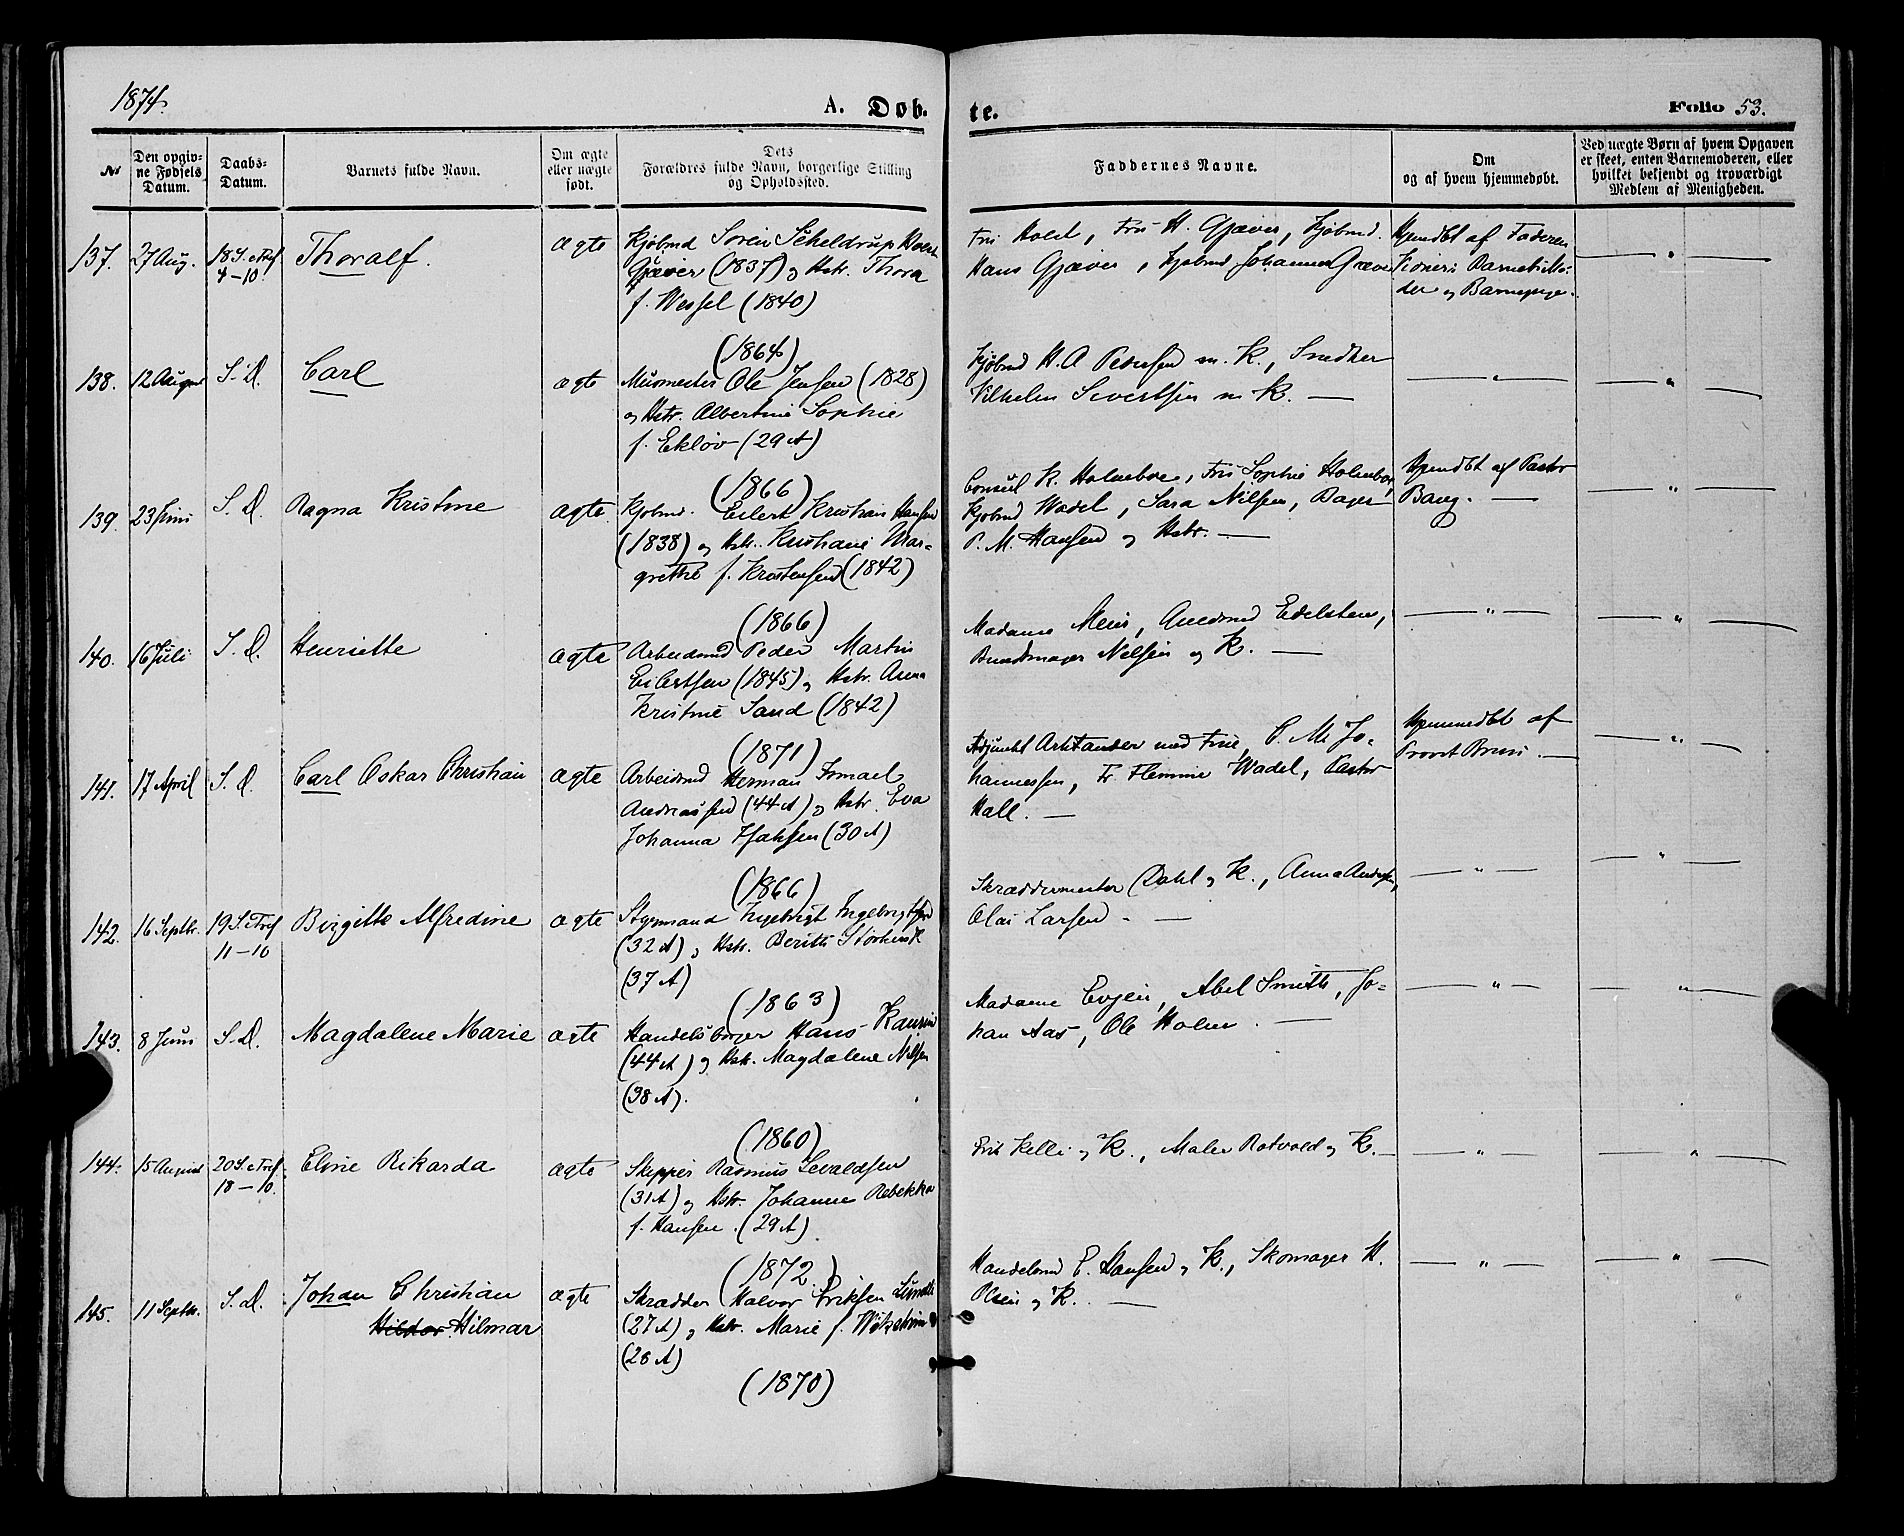 1874.
A. Døb.
te.
Folio 53.
No
Den opgiv-
ne Fødsels
Datum.
Daabs-
Datum.
Barnets fulde Navn.
Om ægte
eller uægte
født.
Dets
Forældres fulde Navn, borgerlige Stilling
og Opholdssted.
Faddernes Navne.
Om
og af hvem hjemmedøbt.
Ved uægte Børn af hvem Opgaven
er skeet, enten Barnemoderen, eller
hvilket bekjendt og troværdigt
Medlem af Menigheden.
137. 27 Aug. 18 S. e Tref
4-10.
Thoralf.
ægte
Kjøbmd Søren Scheldrup Holst
Gjæver (1837) og Hstr. Thora
f. Wessel (1840)
(1864)
Fru Holst, Fru H. Gjæver, Kjøbmd.
Hans Gjæver, Kjøbmd Johannes Gjæver
Hjmdbt af Faderen
Vidner: Barnets Mo-
der og Barnepige.
138. 12 August S. D. Carl ægte
Murmester Ole Jensen (1828)
og Hstr. Albertine Sophie
f. Ekløv (29 A)
(1866)
Kjøbmd H. A Petersen m. K., Snedker
Vilhelm Sivertsen m K. —
139. 23 Juni S. D. Ragna Kristine ægte.
Kjøbmd. Eilert Kristian Hansen
(1838) og Hstr. Kristiane Mar-
grethe f. Kristensen (1842)
(1866)
Consul K. Holmboe, Fru Sophie Holmboe,
Kjøbmd Wadel, Sara Nilsen, Bager
P. M. Hansen og Hstr. —
Hjmdbt af Pastor
Bang. —
140. 16 Juli S. D. Henriette ægte
Arbeidsmd Peder Martin
Eilertsen (1845) og Hstr. Anna
Kristine Sand (1842)
(1871)
Madame Meier, Edelsteen,
Bundtmager Nilsen og K. —
141. 17 April S. D. Carl Oskar Christian ægte
Arbeidsmd Herman Ismael
Andreassen (44 A) og Hstr. Eva
Johanna Isaksen (30 A)
(1866)
Adjunkt Arktander med Frue, P. M. Jo-
hannessen, Fr. Flemine Wadel, Pastor
Hall. —
Hjemmedbt af
Provst Bruun. —
142. 16 Septbr. 19 S. e Tref
11-10
Birgitte Alfredine ægte
Styrmand Ingebrigt Ingebrigtsen
(32 A) og Hstr. Berith
(37 A)
(1863)
Skræddermester Dahl og K., Anna Andersen,
Olai Larsen. —
143. 8 Juni S. D. Magdalene Marie ægte
Handelsborger Hans Kaurin
(44 A) og Hstr. Magdalene Nilsen
(38 A).
(1860)
Madame Evjen, Abel Smith, Jo-
han Aas, Ole Holm. —
144. 15 August 20 S. e Tref.
18-10.
Eline Rikarda ægte
Skipper Rasmus Sevaldsen
(31 A) og Hstr. Johanne Rebekka
f. Hansen. (29 A).
(1872.)
Erik Killi og K., Maler Rotvold og K. —
145. 11 Septbr. S. D. Johan Christian
Hildor. Hilmar
ægte
Skrædder Halvor Eriksen
(27 A) og Hstr. Marie f.
(28 A)
(1870)
Handelsmd E. Hansen og K., Skomager H.
Olsen og K. —